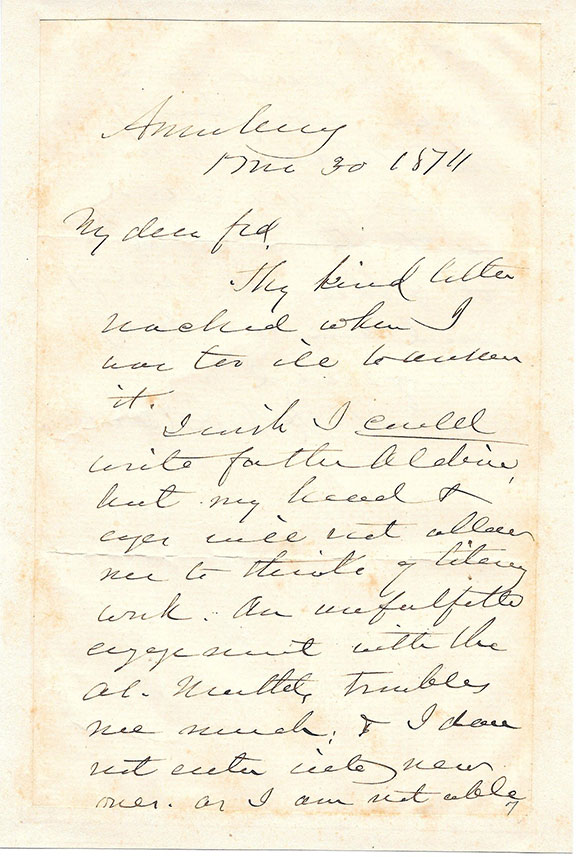 Amesbury
1mo 30 1874
My dear frd.
Thy kind letter
reached when I
was too ill to answer
it.
I wish I could
write for the Aldine,
but my head &
eyes will not allow
me to think of literary
work. An unfulfilled
engagement with the
At. Monthly, troubles
me much; & I dare
not enter into new
ones. as I am not able